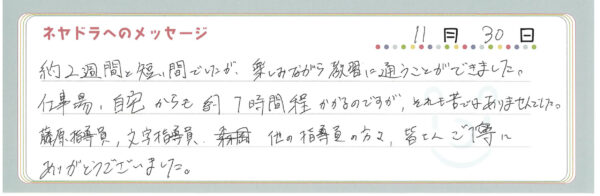 ネヤドラへのメッセージ
11月 30日
約2週間と短い間でしたが、楽しみながら教習に通うことができました。
仕事場、自宅からも約1時間程かかるのですが、それも苦ではありませんでした。
藤原指導員、文字指導員、他の指導員の方々、皆さんご丁寧に
ありがとうございました。